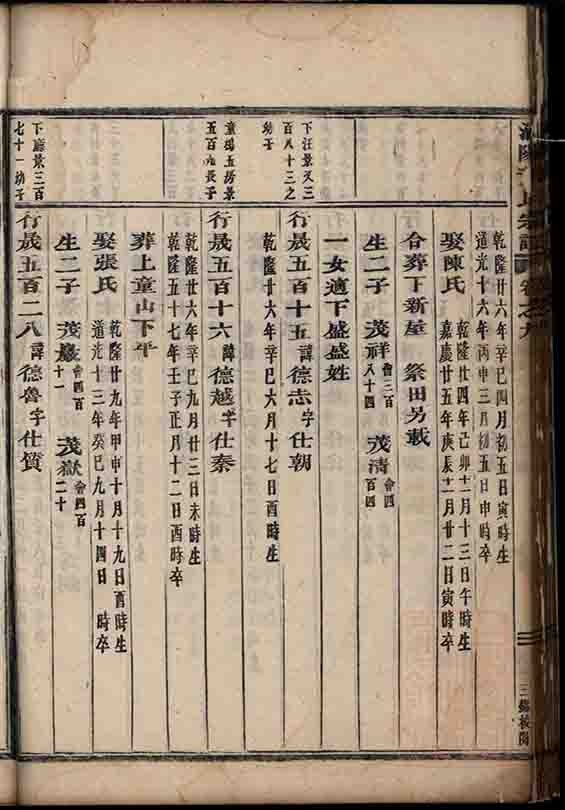 乾隆廿六年辛巳四月初五日寅時生
道光十六年丙申三月初五日申時卒
娶陳氏
乾隆廿四年己卯十二月十三日午時生
嘉慶廿五年庚辰十二月廿二日寅時卒
合葬下新屋 祭田另載
生二子 茂祥 會三百八十四 茂清 會四百四
一女適下盛盛姓
下汪景又三百八十三之幼子
行晟五百十五諱德志字仕朝
乾隆廿六年辛巳六月十七日酉時生
童塢五房景五百九長子
行晟五百十六諱德越字仕秦
乾隆廿六年辛巳九月廿三日未時生
乾隆五十七年壬子正月十二日酉時卒
葬上童山下平
娶張氏
乾隆廿九年甲申十月十九日酉時生
道光十三年癸巳九月十四日 時卒
生二子 茂嚴 會四百十一 茂嶽 會四百二十
下廳景三百七十一幼子
行晟五百二八諱德魯字仕質